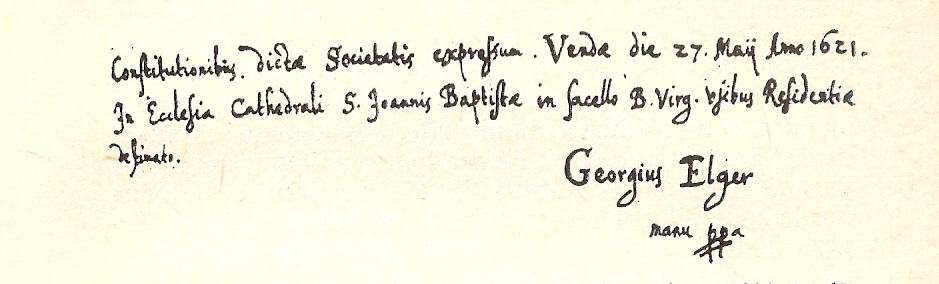 Constitutionibus. dictæ Societatis expressum. Vendæ die 27. Maij Anno 1621.
In Ecclesia Cathedrali S. Joannis Baptistæ in sacello B. Virg. usibus Residentiæ
destinato.
Georgius Elger
manu ppa